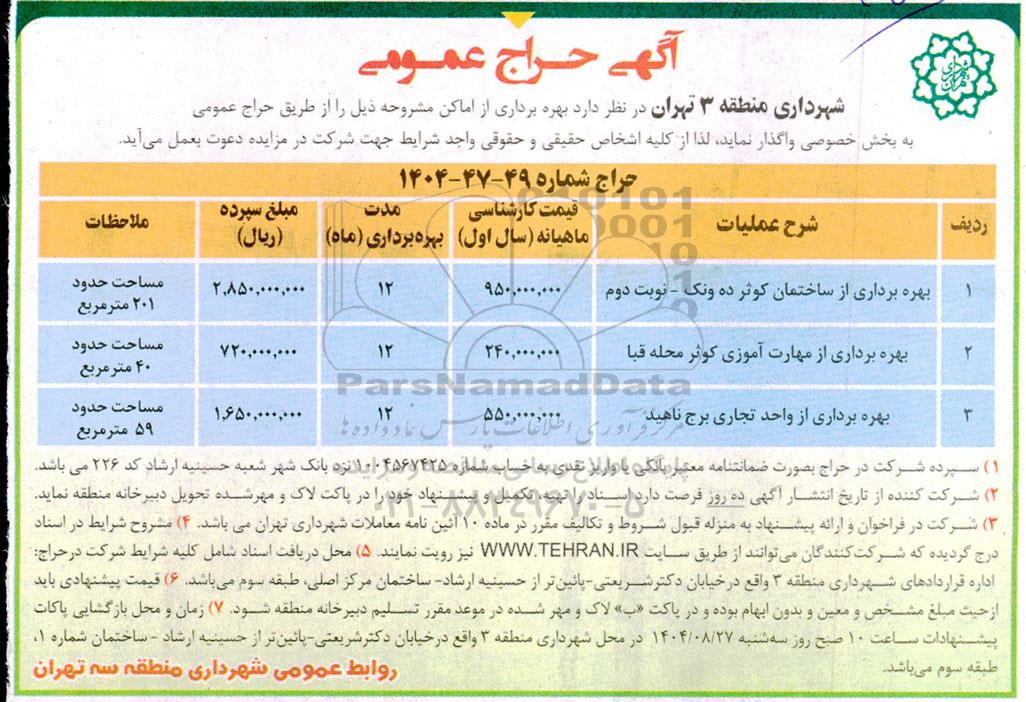 آگهی حراج عمومی
شهرداری منطقه ۳ تهران در نظر دارد بهره برداری از اماکن مشروحه ذیل را از طریق حراج عمومی
به بخش خصوصی واگذار نماید، لذا از کلیه اشخاص حقیقی و حقوقی واجد شرایط جهت شرکت در مزایده دعوت بعمل می‌آید.
حراج شماره ۴۹-۴۷-۱۴۰۴
ردیف شرح عملیات قیمت کارشناسی ماهیانه (سال اول) مدت بهره‌برداری (ماه) مبلغ سپرده (ریال) ملاحظات
۱ بهره برداری از ساختمان کوثر ده ونک - نوبت دوم ۹۵۰,۰۰۰,۰۰۰ ۱۲ ۲,۸۵۰,۰۰۰,۰۰۰ مساحت حدود ۲۰۱ مترمربع
۲ بهره برداری از مهارت آموزی کوثر محله قبا ۲۴۰,۰۰۰,۰۰۰ ۱۲ ۷۲۰,۰۰۰,۰۰۰ مساحت حدود ۴۰ مترمربع
۳ بهره برداری از واحد تجاری برج ناهید ۵۵۰,۰۰۰,۰۰۰ ۱۲ ۱,۶۵۰,۰۰۰,۰۰۰ مساحت حدود ۵۹ مترمربع
ParsNamadData
مرکز فرآوری اطلاعات پارس نماد داده ها
۰۲۱-۸۸۳۴۹۶۷۰-۵
۱) سپرده شرکت در حراج بصورت ضمانتنامه معتبر بانکی یا واریز نقدی به حساب شماره ۱۰۰۴۵۶۷۴۲۵ نزد بانک شهر شعبه حسینیه ارشاد کد ۲۲۶ می باشد.
۲) شرکت کننده از تاریخ انتشار آگهی ده روز فرصت دارد اسناد را تهیه، تکمیل و پیشنهاد خود را در پاکت لاک و مهرشده تحویل دبیرخانه منطقه نماید.
۳) شرکت در فراخوان و ارائه پیشنهاد به منزله قبول شروط و تکالیف مقرر در ماده ۱۰ آئین نامه معاملات شهرداری تهران می باشد. ۴) مشروح شرایط در اسناد
درج گردیده که شرکت‌کنندگان می‌توانند از طریق سایت WWW.TEHRAN.IR نیز رویت نمایند. ۵) محل دریافت اسناد شامل کلیه شرایط شرکت درحراج:
اداره قراردادهای شهرداری منطقه ۳ واقع درخیابان دکترشریعتی-پائین‌تر از حسینیه ارشاد- ساختمان مرکز اصلی، طبقه سوم می‌باشد. ۶) قیمت پیشنهادی باید
ازحیث مبلغ مشخص و معین و بدون ابهام بوده و در پاکت «ب» لاک و مهر شده در موعد مقرر تسلیم دبیرخانه منطقه شود. ۷) زمان و محل بازگشایی پاکات
پیشنهادات ساعت ۱۰ صبح روز سه‌شنبه ۱۴۰۴/۰۸/۲۷ در محل شهرداری منطقه ۳ واقع درخیابان دکترشریعتی-پائین‌تر از حسینیه ارشاد - ساختمان شماره ۱،
طبقه سوم می‌باشد.
روابط عمومی شهرداری منطقه سه تهران